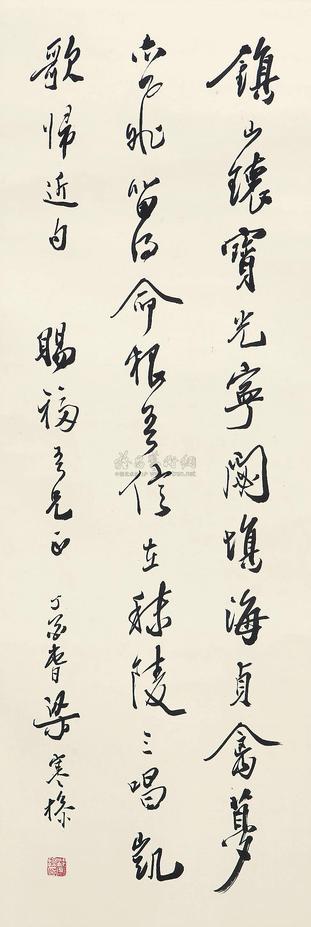 鎮山瓌寶光寧閟填海貞禽夢
亦飛留得命根吾信在秣陵三唱凱
歌歸近句 賜福吾兄正 丁酉春梁寒操